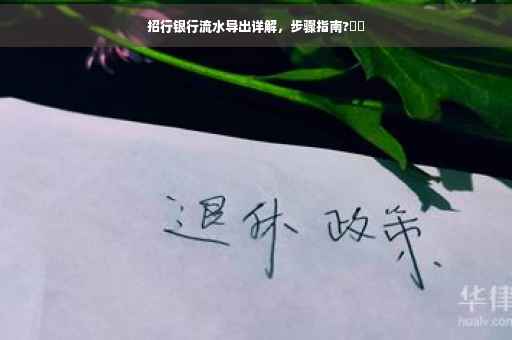 招行银行流水导出详解，步骤指南?
退休 政策
华律
hualv.com